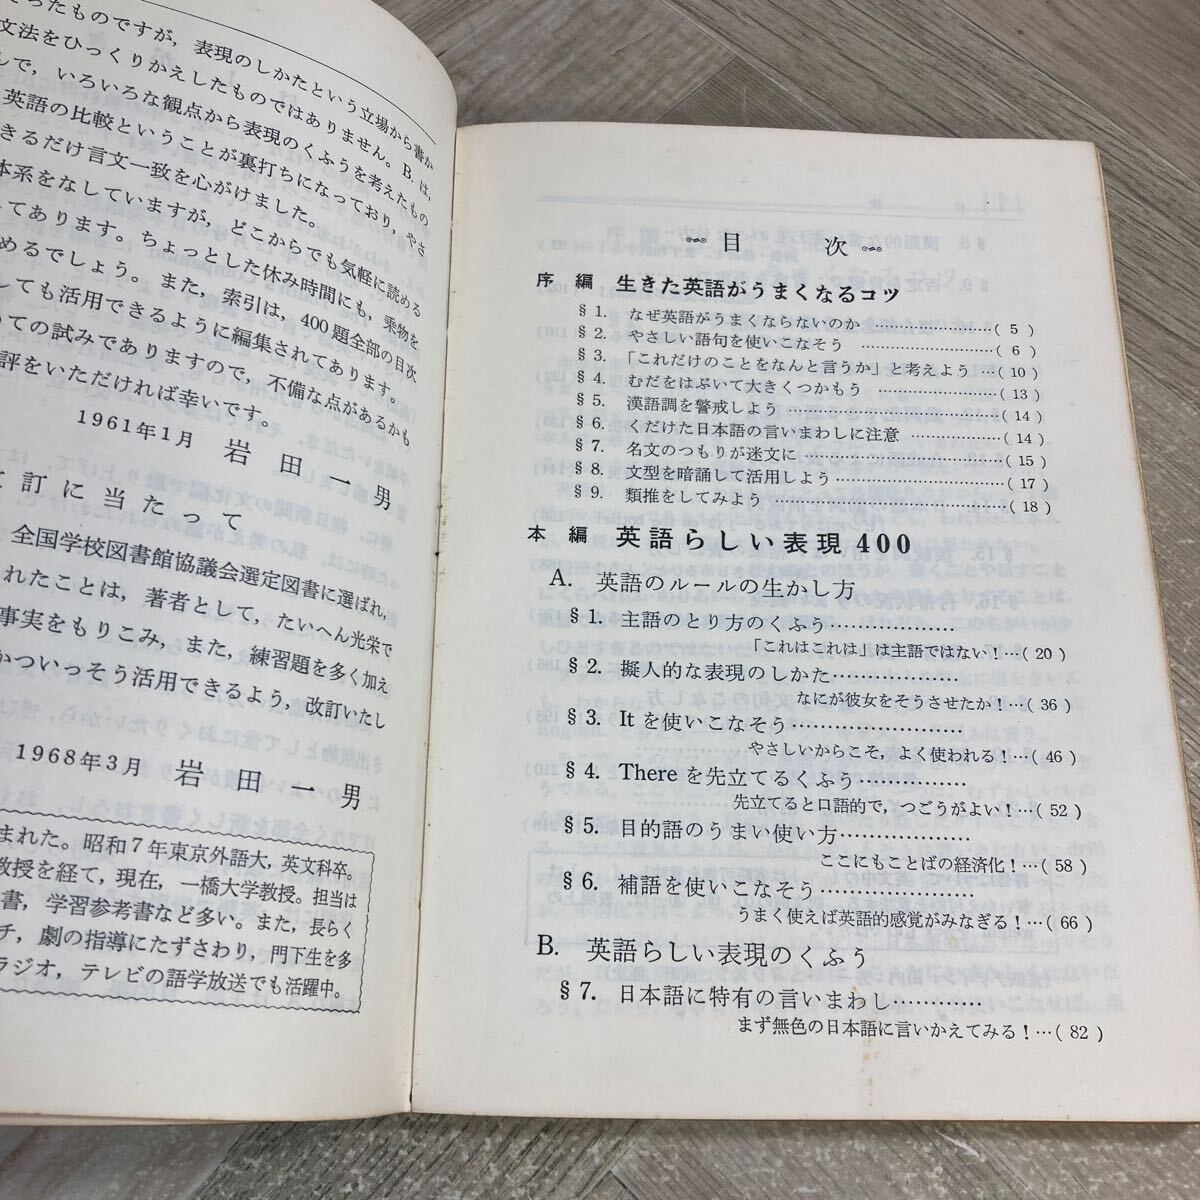 ったものですが，表現のしかたという立場から書か
文法をひっくりかえしたものではありません。B. は，
で，いろいろな観点から表現のくふうを考えたもの
英語の比較ということが裏打ちになっており，やさ
きるだけ言文一致を心がけました。
体系をなしていますが，どこからでも気軽に読める
てあります。ちょっとした休み時間にも，乗物を
めるでしょう。また，索引は，400題全部の目次
しても活用できるように編集されてあります。
ての試みでありますので，不備な点があるかも
評をいただければ幸いです。
1961年1月 岩田一男
訂に当たって
全国学校図書館協議会選定図書に選ばれ，
れたことは，著者として，たいへん光栄で
事実をもりこみ，また，練習題を多く加え
かついっそう活用できるよう，改訂いたし
1968年3月 岩田一男
まれた。昭和7年東京外語大，英文科卒。
教授を経て，現在，一橋大学教授。担当は
書，学習参考書など多い。また，長らく
チ，劇の指導にたずさわり，門下生を多
ラジオ，テレビの語学放送でも活躍中。
目次
序編 生きた英語がうまくなるコツ
§1. なぜ英語がうまくならないのか………………( 5 )
§2. やさしい語句を使いこなそう………………( 6 )
§3. 「これだけのことをなんと言うか」と考えよう…(10)
§4. むだをはぶいて大きくつかもう………………(13)
§5. 漢語調を警戒しよう………………(14)
§6. くだけた日本語の言いまわしに注意………………(14)
§7. 名文のつもりが迷文に………………(15)
§8. 文型を暗誦して活用しよう………………(17)
§9. 類推をしてみよう………………(18)
本編 英語らしい表現400
A. 英語のルールの生かし方
§1. 主語のとり方のくふう………………
「これはこれは」は主語ではない！…(20)
§2. 擬人的な表現のしかた………………
なにが彼女をそうさせたか！…(36)
§3. Itを使いこなそう………………
やさしいからこそ，よく使われる！…(46)
§4. Thereを先立てるくふう……………
先立てると口語的で，つごうがよい！…(52)
§5. 目的語のうまい使い方………………
ここにもことばの経済化！…(58)
§6. 補語を使いこなそう………………
うまく使えば英語的感覚がみなぎる！…(66)
B. 英語らしい表現のくふう
§7. 日本語に特有の言いまわし……………
まず無色の日本語に言いかえてみる！…(82)